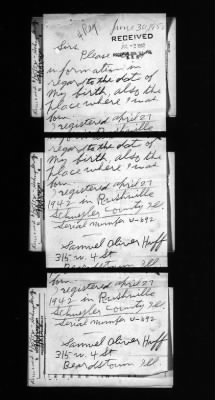 June 30, 1950
RECEIVED
Sirs
Please
information in
regard to the dat of
My birth, also the
place where I was
born
I registered april 27
Rushville
regard to the dat of
My birth, also the
place where I was
born
I registered april 27
1942 in Rushville
Schuyler County Ill
Serial number U-292
Samuel Oliver Huff
315 W. 4 St
Beardstown Ill
born
I registered april 27
1942 in Rushville
Schuyler County Ill
Serial number U-292
Samuel Oliver Huff
315 W. 4 St
Beardstown Ill.